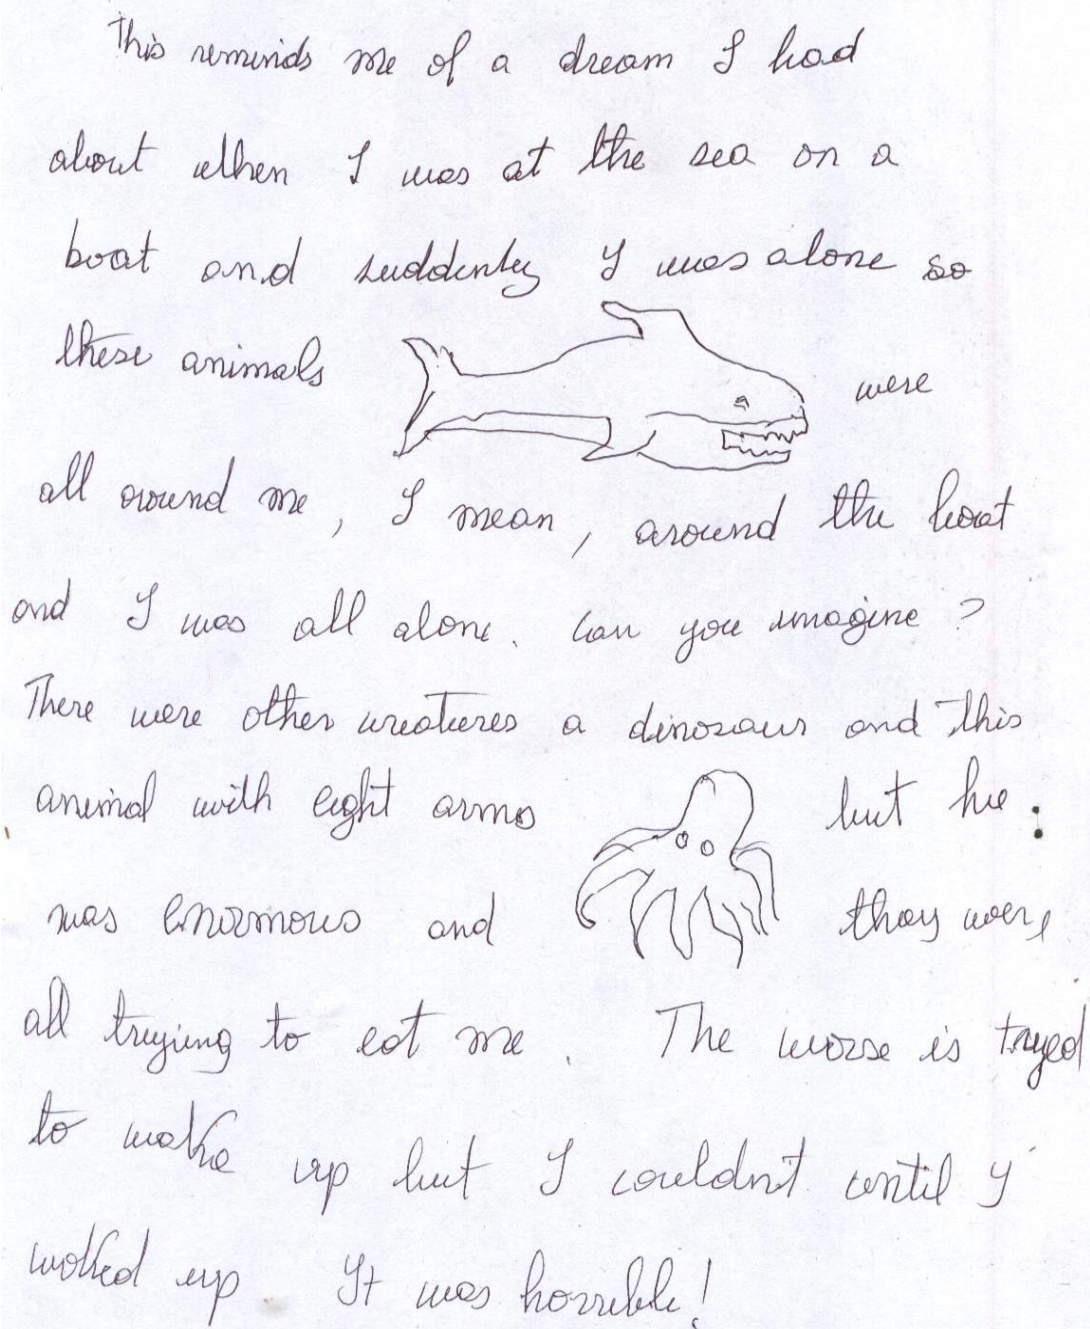 This reminds me of a dream I had
about when I was at the sea on a
boat and suddenly I was alone so
these animals were
all around me, I mean, around the boat
and I was all alone. Can you imagine?
There were other creatures a dinosaur and this
animal with eight arms but he
was enormous and they were
all trying to eat me. The worse is tryed
to wake up but I couldn't until I
waked up. It was horrible!